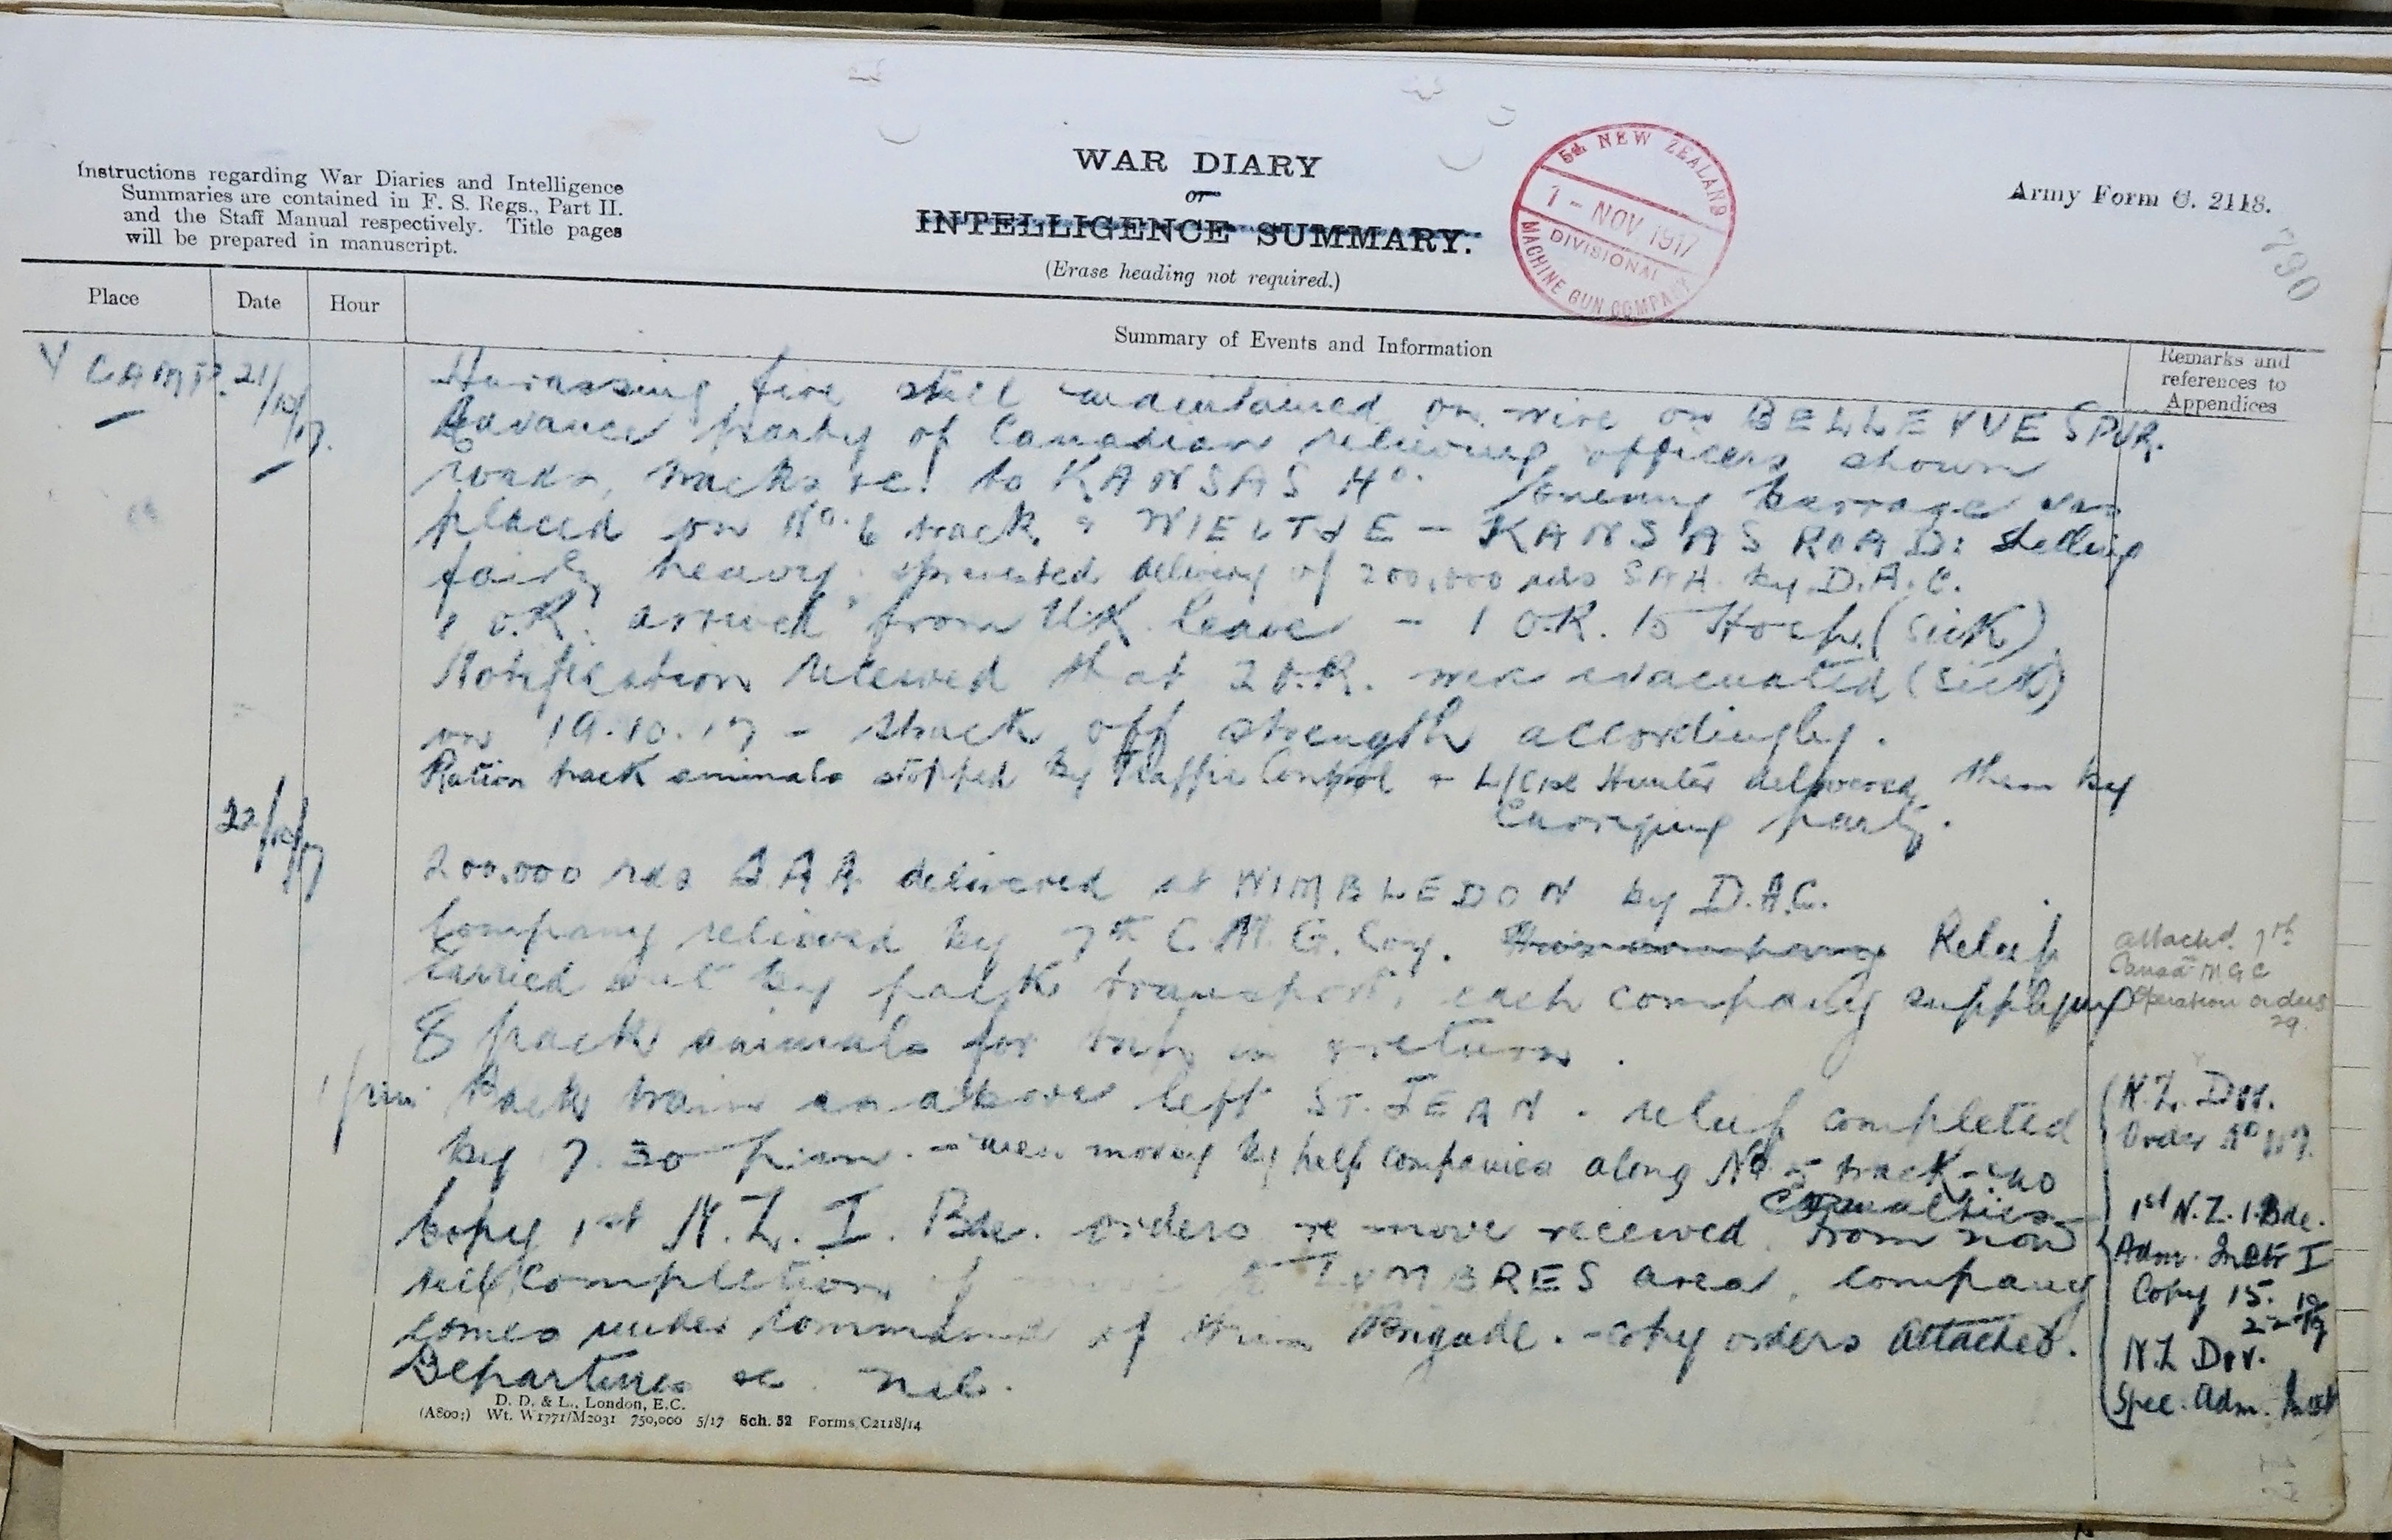 Instructions regarding War Diaries and Intelligence
Summaries are contained in F. S. Regs., Part II.
and the Staff Manual respectively. Title pages
will be prepared in manuscript.
WAR DIARY
or
INTELLIGENCE SUMMARY.
(Erase heading not required.)
5th NEW ZEALAND
1 - NOV 1917
DIVISIONAL
MACHINE GUN COMPANY
Army Form C. 2118.
790
Place Date Hour
Summary of Events and Information
Remarks and
references to
Appendices
Y CAMP. 21/10/17.
Harassing fire still maintained on wire on BELLEVUE SPUR.
Advance party of Canadian relieving officers shown
roads, tracks &c. to KANSAS Ho. Evening barrage was
placed on No. 6 track & WIELTJE - KANSAS ROAD: Shelling
fairly heavy; prevented delivery of 200,000 rds S.A.A. by D.A.C.
O.R. arrived from U.K. leave - 1 O.R. to Hosp. (sick).
Notification received that 2 O.R. were evacuated (sick)
on 19.10.17 - struck off strength accordingly.
Ration pack animals stopped by Traffic Control & L/Cpl Hunter delivered them by
Carrying party.
22/10/17
200,000 rds S.A.A. delivered at WIMBLEDON by D.A.C.
Company relieved by 7th C.M.G. Coy. Relief
carried out by pack transport, each company supplying
8 pack animals for trip in & return.
attached 7th
Canad. M G C
Operation orders
29.
1 pm Pack train as above left ST. JEAN. relief completed
by 7.30 p.m. - men moving by half companies along No 5 track - no
casualties
Copy 1st N.Z.I. Bde. orders re move received. From now
till completion of move to LUMBRES area, company
comes under command of this Brigade. - copy orders attached.
Departures &c. nil.
N.Z. Div.
Order No 117.
1st N.Z.I. Bde.
Adm. Instr I
Copy 15.
22/10/17
N.Z Div.
Spec. Adm. Inst
D. D. & L., London, E.C.
(A8001) Wt. W1771/M2031 750,000 5/17 Sch. 52 Forms C2118/14